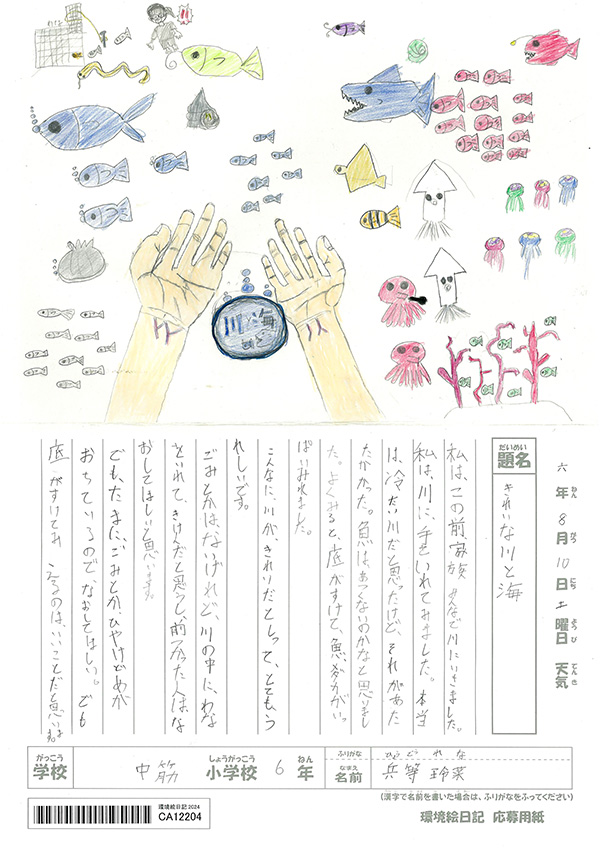 わな
!!
川と海
だいめい
題名
きれいな川と海
六年8月10日土曜日 天気
ねん がつ にち ようび てんき
私は、この前、家族みんなで川にいきました。
私は、川に、手をいれてみました。本当
は、冷たい川だと思ったけど、それがあた
たかかった。魚は、あつくないのかなと思いまし
た。よくみると、底がすけて、魚、がいっ
ぱいみれました。
こんなに、川が、きれいだとしって、とてもう
れしいです。
ごみとかはないけれど、川の中に、わな
といれて、きけんだと思うし、前つかった人はな
おしてほしいと思います。
でも、たまに、ごみとか、ひやけどめが
おちているので、なおしてほしい。でも
底がすけてみえるのは、いいことだと思います。
がっこう
学校
中筋
しょうがっこう
小学校
6
ねん
年
ふりがな
ひょうどう れな
なまえ
名前
兵等 玲菜
(漢字で名前を書いた場合は、ふりがなをふってください)
環境絵日記 2024
CA12204
環境絵日記 応募用紙